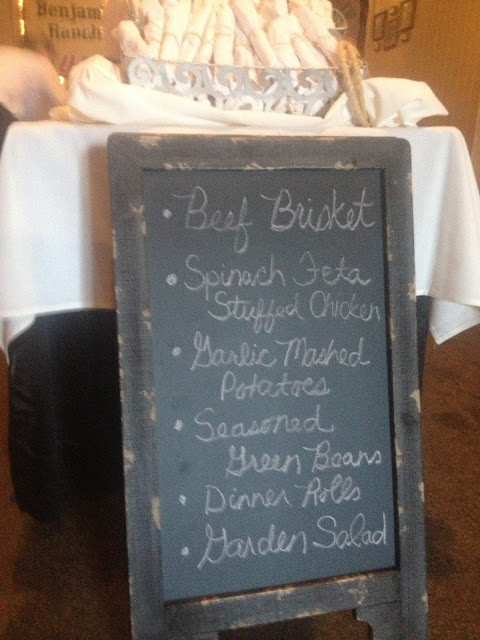 Benjam
Ranch
• Beef Brisket
• Spinach Feta
Stuffed Chicken
• Garlic Mashed
Potatoes
• Seasoned
Green Beans
• Dinner Rolls
• Garden Salad